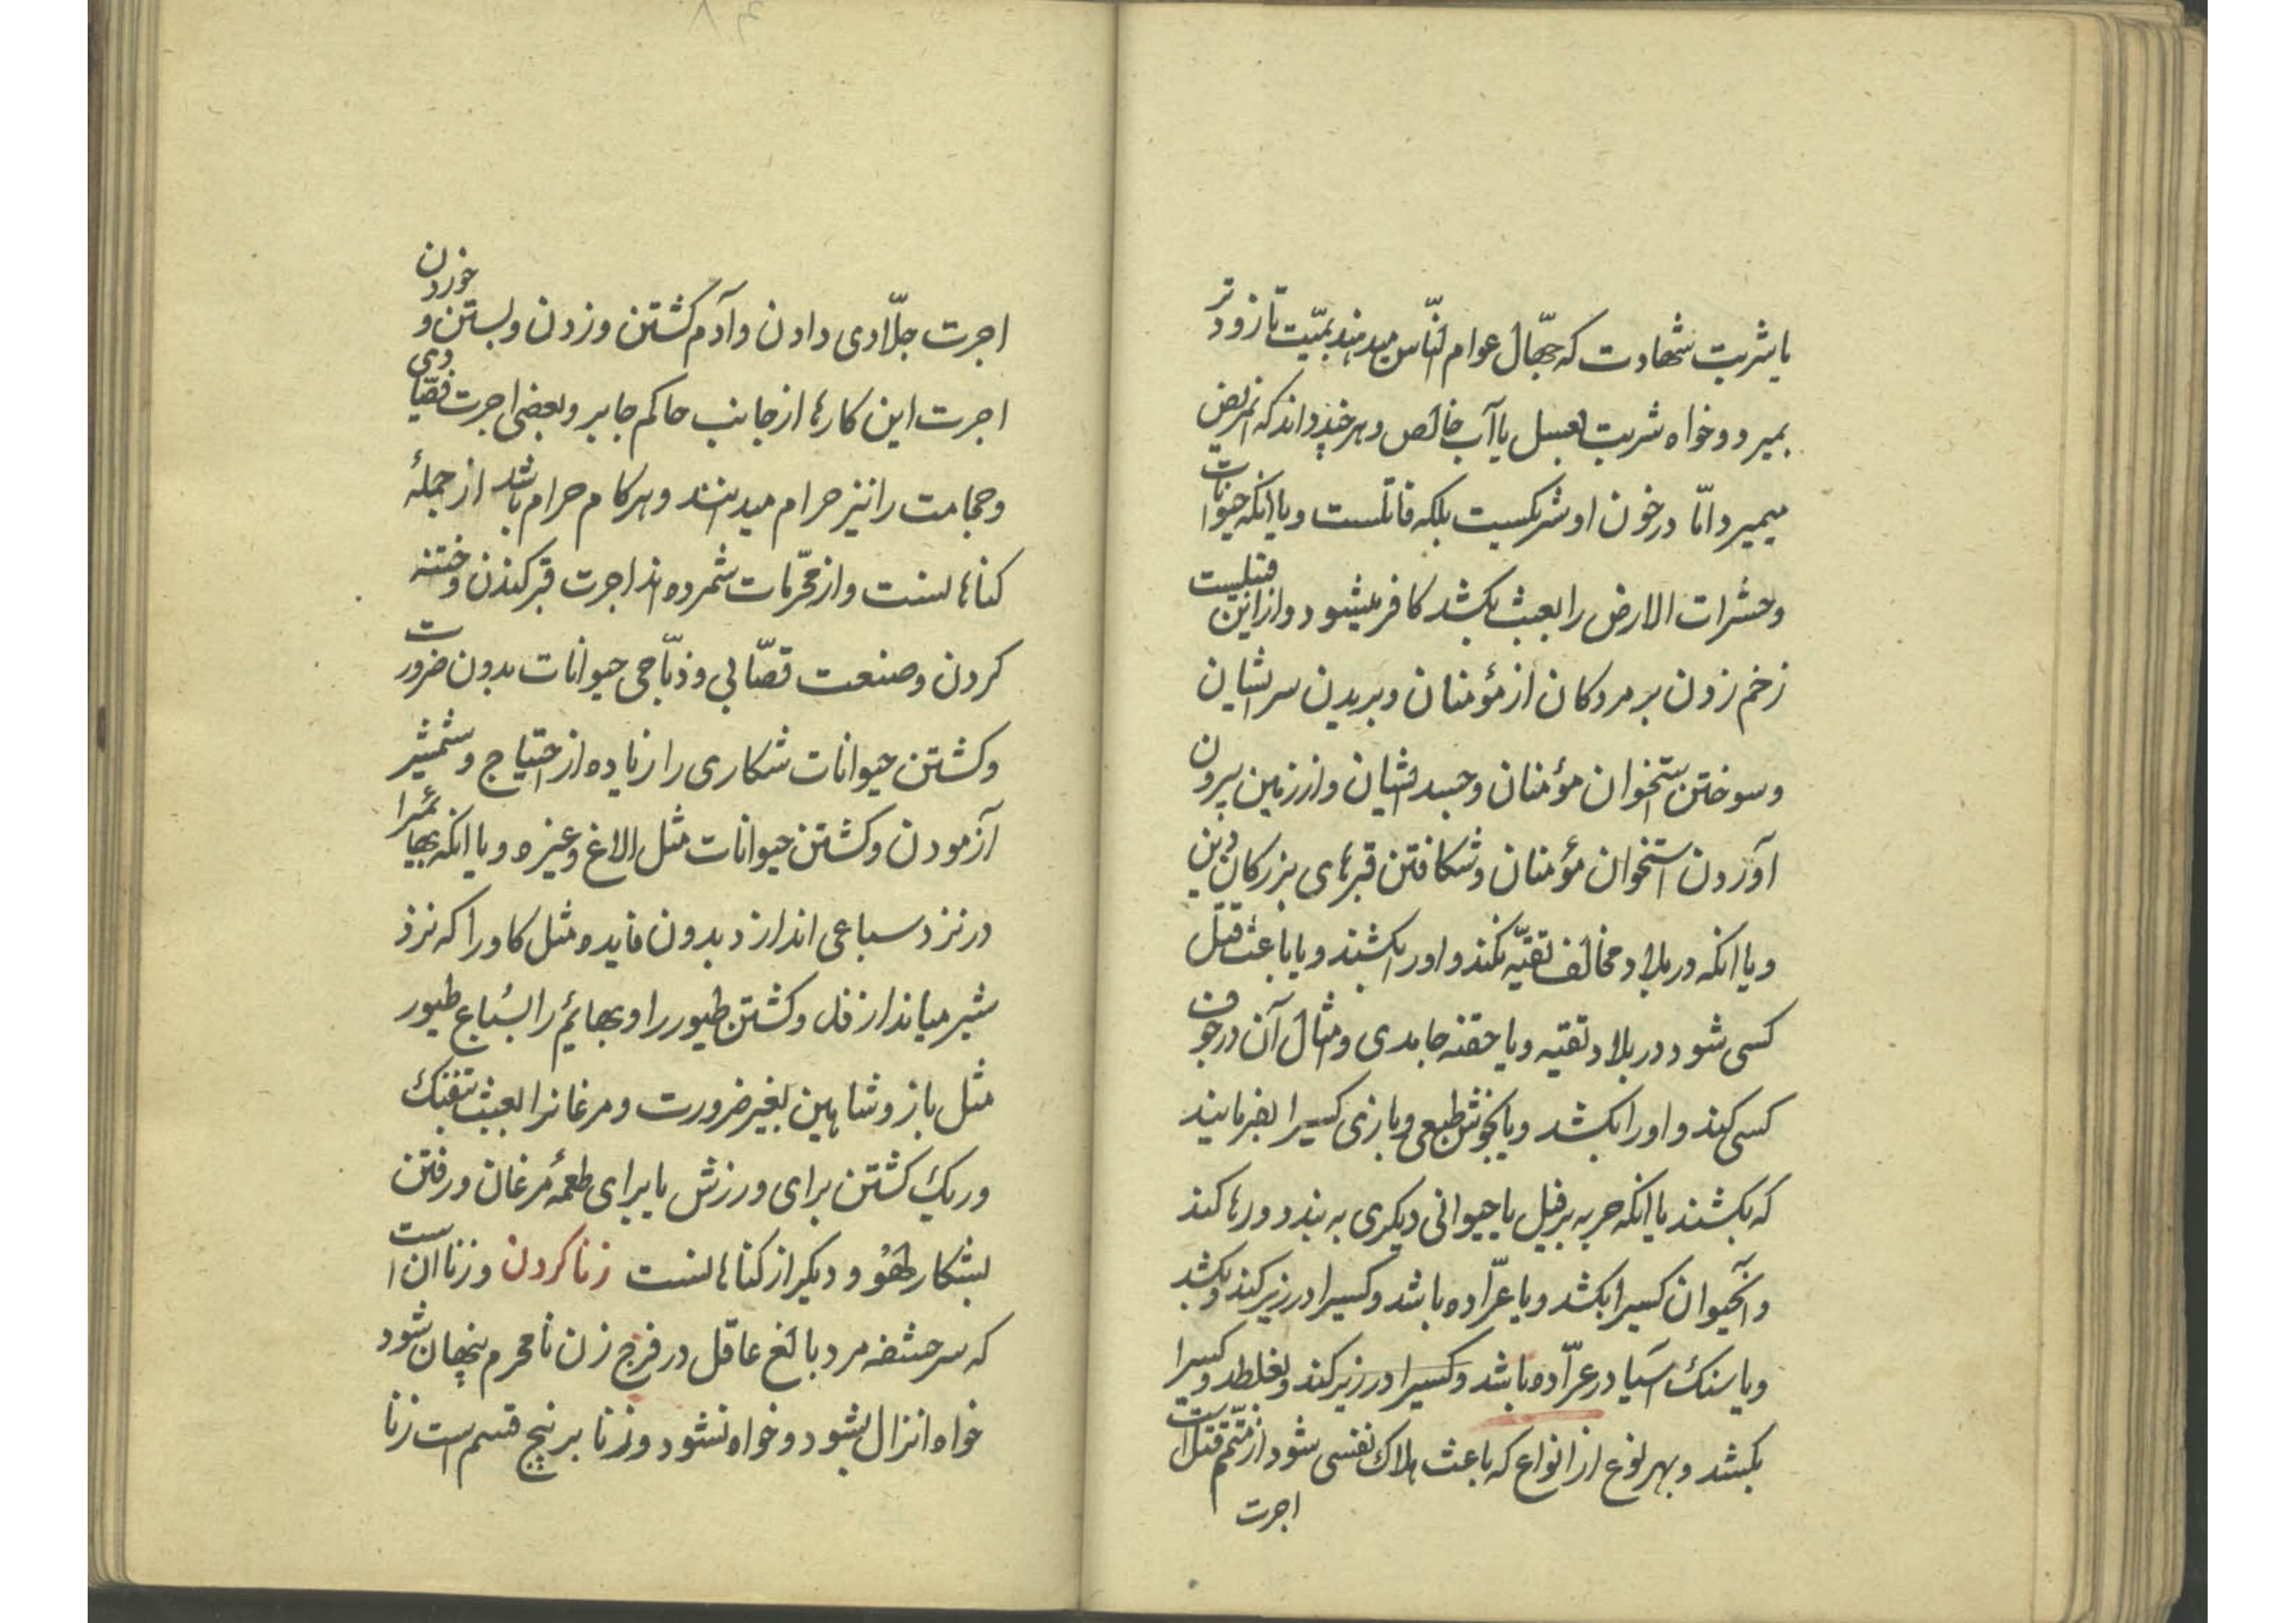 یا شربت شهادت که جهّال عوام النّاس میدهند بمیّت تا زودتر
بمیرد و خواه شربت بعسل یا آب خالص و هر چند داند که آنمریض
میمیرد امّا در خون او شریکست بلکه قاتلست و یا آنکه حیوانات
و حشرات الارض را بعبث بکشد کافر میشود و از این قبیلست
زخم زدن بر مردکان از مؤمنان و بریدن سر ایشان
و سوختن استخوان مؤمنان و جسد ایشان و از زمین بیرون
آوردن استخوان مؤمنان و شکافتن قبرهای بزرکان دین
و یا آنکه در بلاد مخالف تقیّه نکند و اورا بکشند و یا باعث قتل
کسی شود در بلاد تقیه و یا حقنه جامدی و مثال آن در جوف
کسی کند و اورا بکشد و یا بخوش طبعی و بازی کسیرا بفرمایند
که بکشند یا آنکه حربه بر فیل یا حیوانی دیکری به بندد و رها کند
و آنحیوان کسیرا بکشد و یا عرّاده باشد و کسیرا در زیر کند و بکشد
و یا سنك آسیا در عرّاده باشد و کسیرا در زیر کند و بغلطد و کسیرا
بکشد و بهر نوع از انواع که باعث هلاك نفسی شود از متمّم قتل است
اجرت
اجرت جلّادی دادن و آدم کشتن و زدن و بستن و خوردن
اجرت این کارها از جانب حاکم جایر و بعضی اجرت فصّادی
و حجامت را نیز حرام میدانند و هر کام حرام باشد از جملهٔ
کناهانست و از محرّمات شمرده اند اجرت قبر کندن و ختنه
کردن و صنعت قصّابی و ذبّاحی حیوانات بدون ضرورت
و کشتن حیوانات شکاری را زیاده از احتیاج و شمشیر
آزمودن و کشتن حیوانات مثل الاغ و غیره و یا آنکه بهائمرا
در نزد سباعی اندازد بدون فایده مثل کاو را که نزد
شیر میاندازند و کشتن طیور را و بهائم را بسُباع طیور
مثل باز و شاهین بغیر ضرورت و مرغانرا بعبث بتفنك
و ریك کشتن برای ورزش یا برای طعمهٔ مرغان و رفتن
بشکار لَهْو و دیکر از کناهانست زنا کردن و زنا آن است
که سر حشفه مرد بالغ عاقل در فرج زن نامحرم پنهان شود
خواه انزال بشود و خواه نشود و زنا بر پنج قسم است زنا